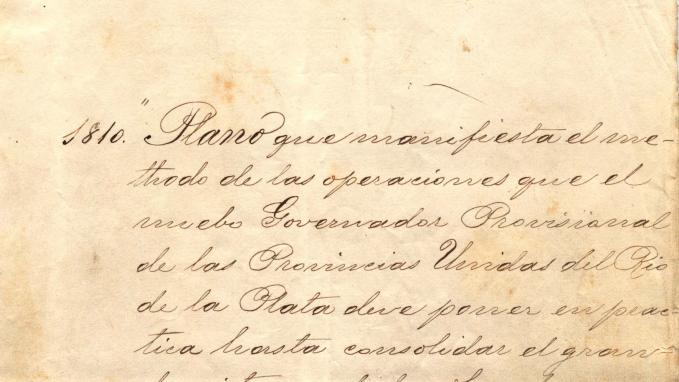 1810. "Plano que manifiesta el me-
thodo de las operaciones que el
nuebo Governador Provisional
de las Provincias Unidas del Rio
de la Plata deve poner en prac-
tica hasta consolidar el gran-